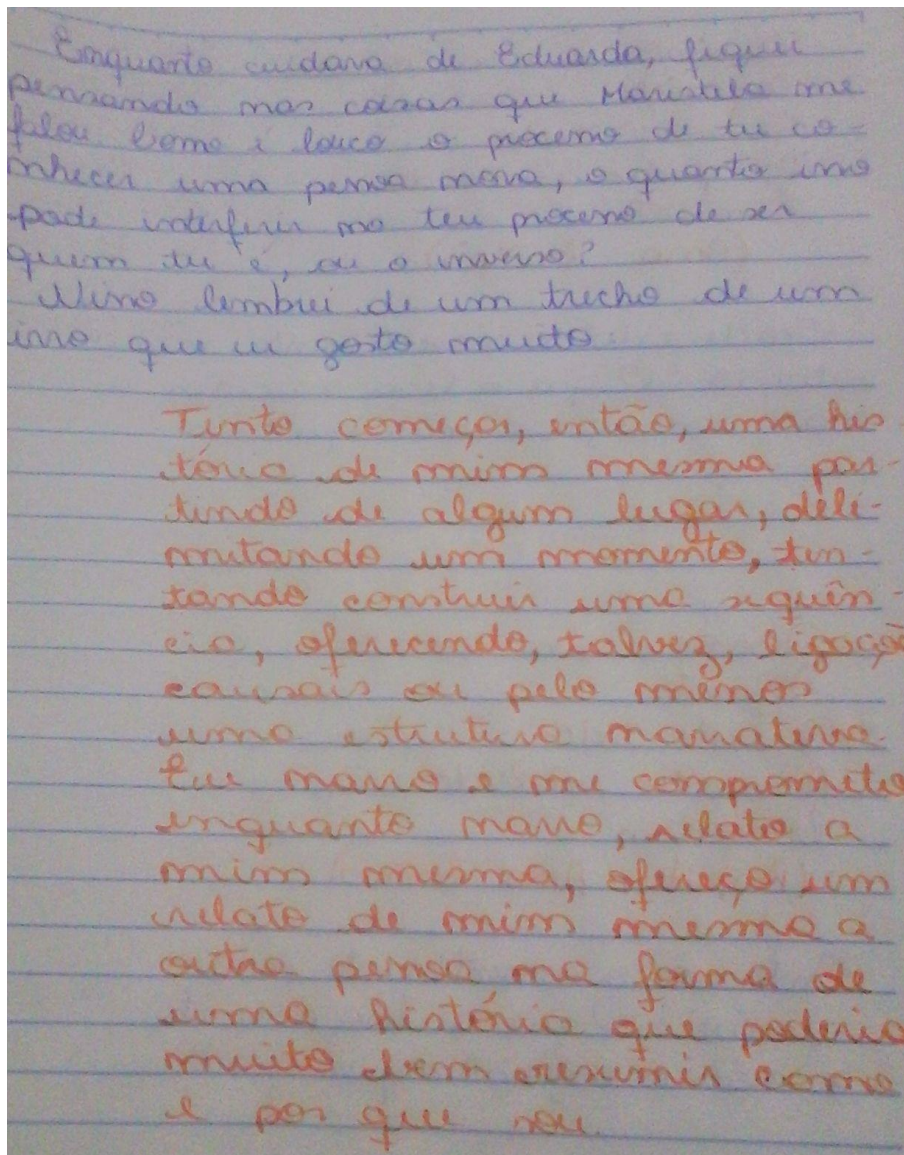 Enquanto cuidava de Eduarda, fiquei
pensando nas coisas que Maristela me
falou. Como é louco o processo de tu co-
nhecer uma pessoa nova, o quanto isso
pode interferir no teu processo de ser
quem tu é, ou o inverso?
Nisso lembrei de um trecho de um
livro que eu gosto muito
Tento começar, então, uma his-
tória de mim mesma par-
tindo de algum lugar, deli-
mitando um momento, ten-
tando construir uma sequên-
cia, oferecendo, talvez, ligações
causais ou pelo menos
uma estrutura narrativa.
Eu narro e me comprometo
enquanto narro, relato a
mim mesma, ofereço um
relato de mim mesma a
outra pessoa na forma de
uma história que poderia
muito bem resumir como
e por que sou.